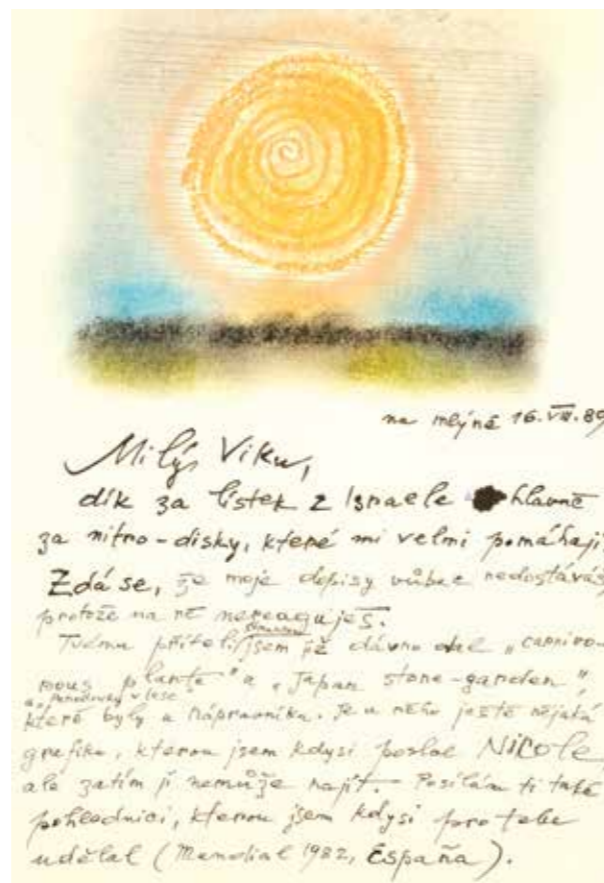 na mlýně 16.VIII.89
Milý Viku,
dík za lístek z Israele hlavně
za nitro-disky, které mi velmi pomáhají
Zdá se, že moje dopisy vůbec nedostáváš,
protože na ně nereaguješ.
Tvému příteli jsem již dávno dal „carnivo-
rous plants" a „Japan stone-garden",
a v lese
které byly u Nápravníka. Je u něho ještě nějaká
grafika, kterou jsem kdysi poslal Nicole,
ale zatím ji nemůže najít. Posílám ti také
pohlednici, kterou jsem kdysi pro tebe
udělal (Mundial 1982, España).